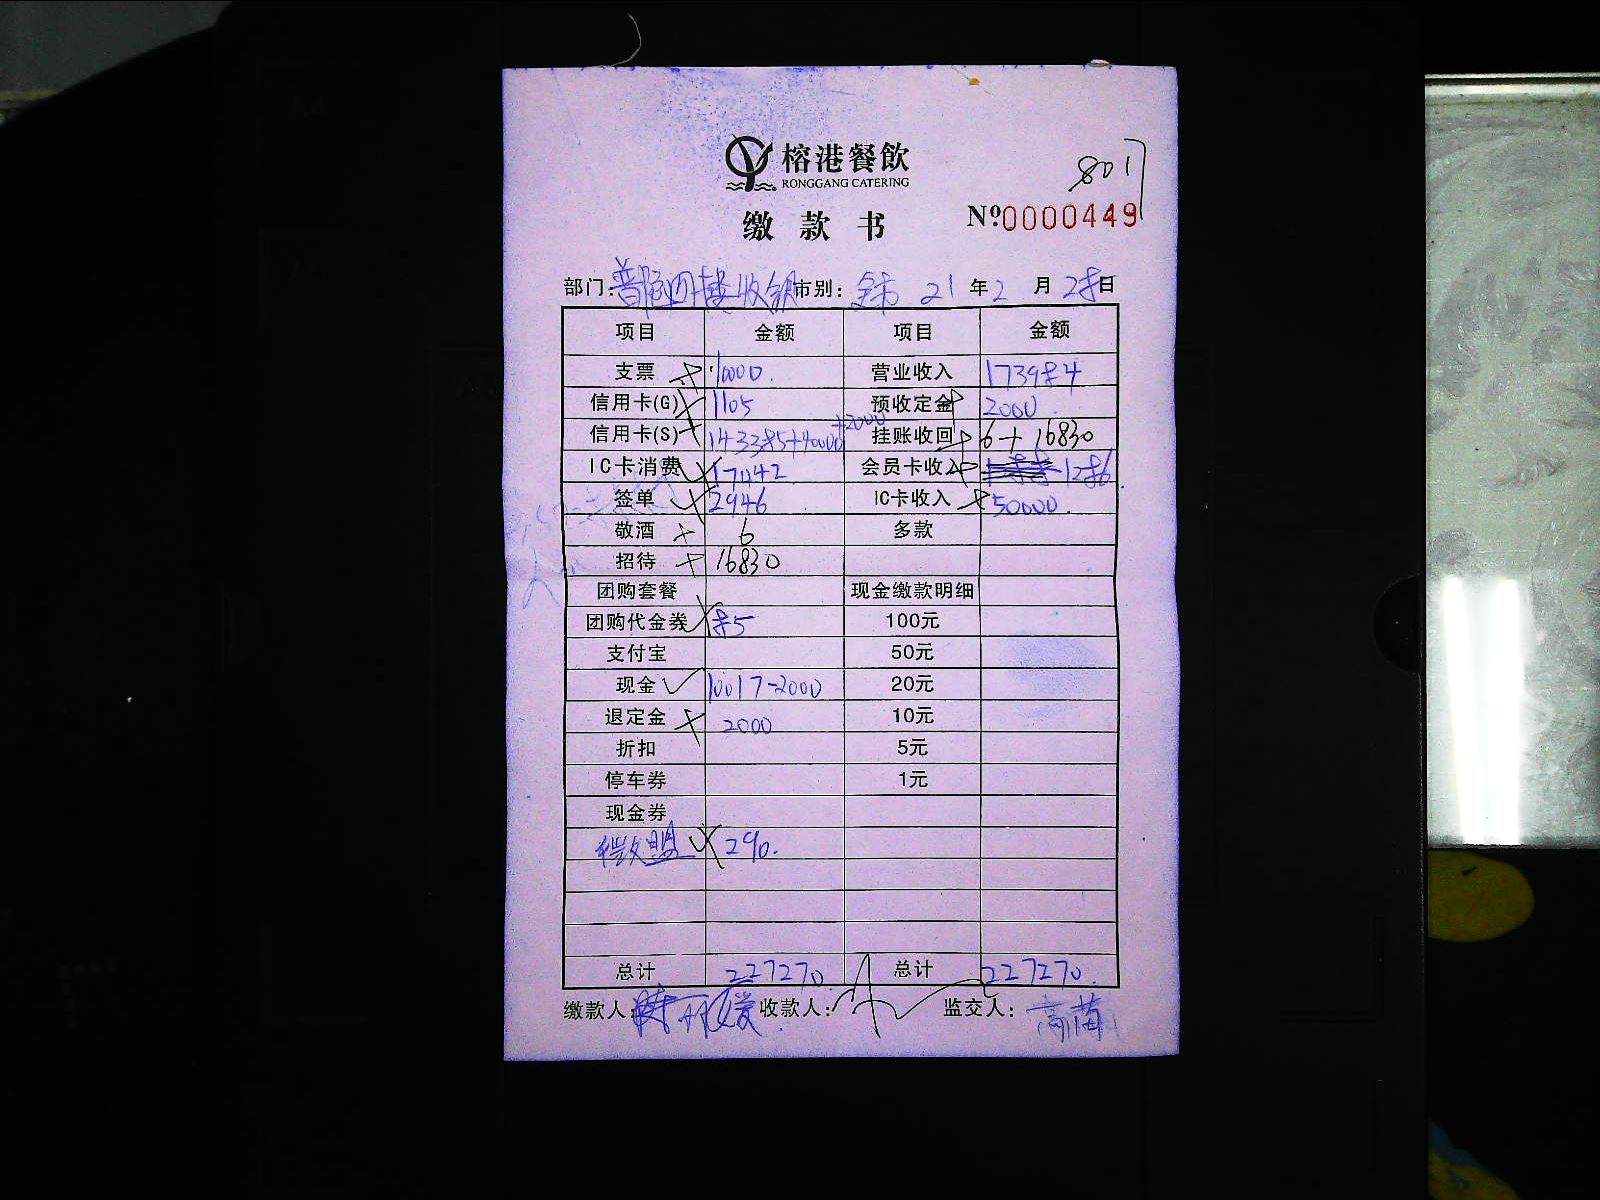 榕港餐飲
RONGGANG CATERING
801
缴款书 Nº:0000449
部门:普陀四楼收银 市别:全市 21年2月28日
项目 金额 项目 金额
支票 10000. 营业收入 173984
信用卡(G) 1105 预收定金 2000.
信用卡(S) 143385+40000+2000 挂账收回 6+16830
IC卡消费 17442 会员卡收入 1286.
签单 2946 IC卡收入 50000.
敬酒 6 多款
招待 16830
团购套餐 现金缴款明细
团购代金券 85 100元
支付宝 50元
现金 10017-2000 20元
退定金 2000 10元
折扣 5元
停车券 1元
现金券
微盟 290.
总计 227270. 总计 227270.
缴款人: 收款人: 监交人: